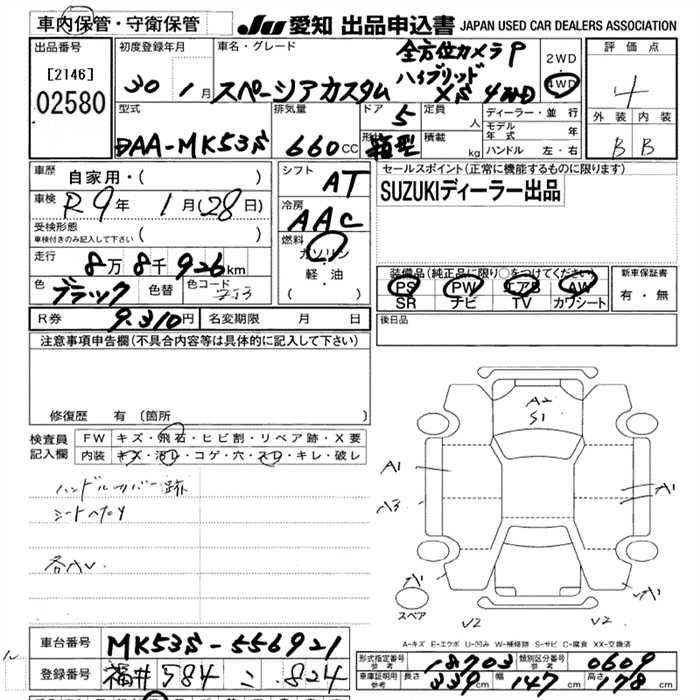 車内保管・守衛保管
JU 愛知 出品申込書 JAPAN USED CAR DEALERS ASSOCIATION
出品番号
[2146]
02580
初度登録年月
30 年 1 月
車名・グレード
スペーシアカスタム
全方位カメラ P
ハイブリッド
XS 4WD
2WD
4WD
評価点
4
外装 内装
B B
型式
DAA-MK53S
排気量
660 CC
ドア 5
形状 箱型
定員 人
積載 kg
ディーラー・並行
モデル年式 年
ハンドル 左・右
車歴 自家用・( )
車検 R9年 1月(28日)
受検形態
車検付きのみ記入して下さい ( )
走行 8万8千926km
色 ブラック 色替 色コード
シフト AT
冷房 AAC
燃料 ガソリン
軽・油
( )
セールスポイント(正常に機能するものに限ります)
SUZUKIディーラー出品
装備品(純正品に限り○をつけてください)
PS PW エアB AW
SR ナビ TV カワシート
新車保証書
有・無
R券 9,310円 名変期限 月 日
後日品
注意事項申告欄(不具合内容等は具体的に記入して下さい)
修復歴 有〔箇所 〕
検査員記入欄
FW キズ・飛石・ヒビ割・リペア跡・X要
内装 キズ・汚レ・コゲ・穴・スレ・キレ・破レ
ハンドルカバー跡
A2
S1
A1
A3
A1
A1
A1
A1
スペア
V2 V2
A-キズ E-エクボ U-凹み W-補修跡 S-サビ C-腐食 XX-交換済
車台番号 MK53S-556921
登録番号 福井 584 こ 824
形式指定番号 参考 18703 類別区分番号 参考 0609
車庫証明用 参考 長さ 339cm 幅 147cm 高さ 178cm